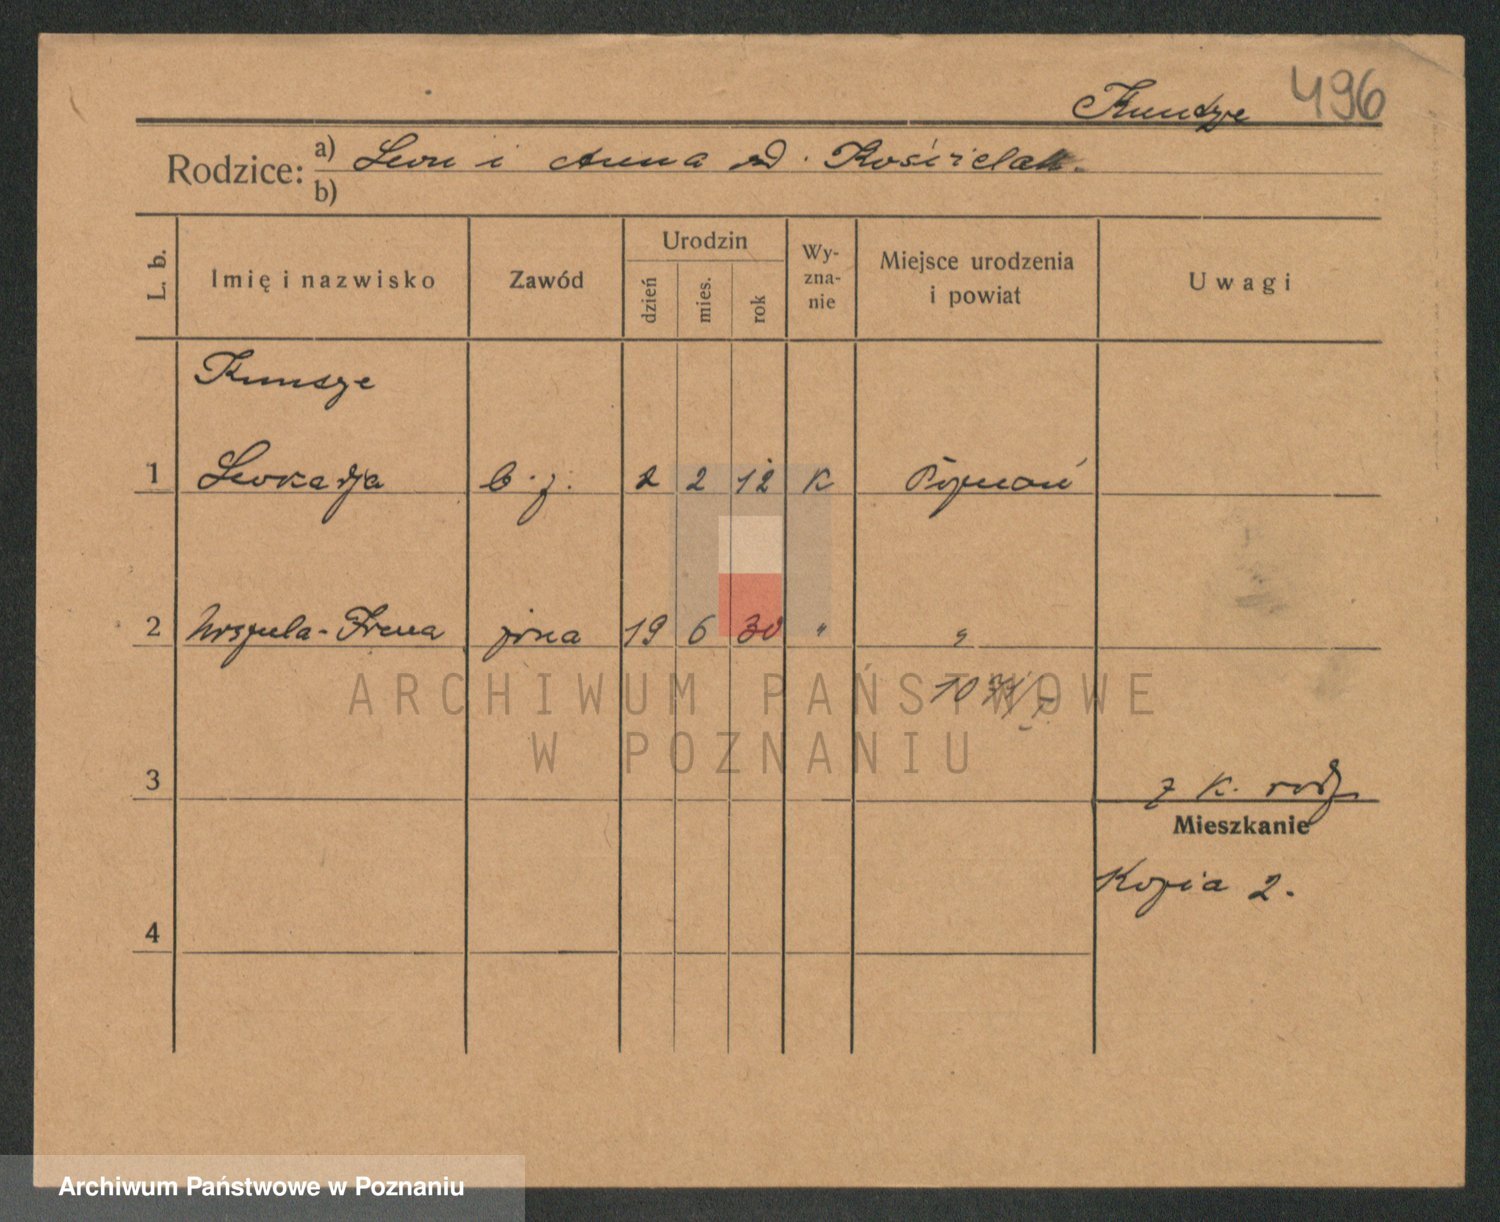 Kundze 496
Rodzice: a) Leon i Anna zd. Kościelak.
b)
L. b. Imię i nazwisko Zawód Urodzin dzień mies. rok Wy-zna-nie Miejsce urodzenia i powiat Uwagi
Kundze
1 Leokadja b. z. 2 2 12 K Poznań
2 Urszula-Irena córka 19 6 30 " "
ARCHIWUM PAŃSTWOWE
W POZNANIU
3 z k. rodz.
Mieszkanie
Kopia 2.
4
Archiwum Państwowe w Poznaniu